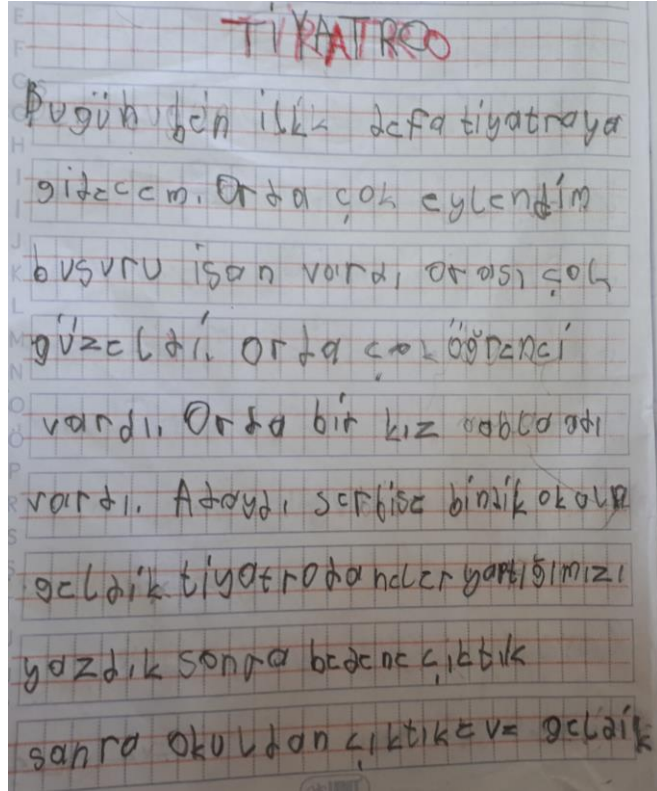 TİYAATROO
Bugün ben ilk defa tiyatroya
gidecem. Orda çok eylendim
busuru isan vardı orası çok
güzeldi. Orda çok öğrenci
vardı. Orda bir kız adı
vardı. Adaydı serbise bindik okula
geldik tiyatroda neler yaptığımızı
yazdık sonra bedene çıktık
sanra okuldan çıktık eve geldik